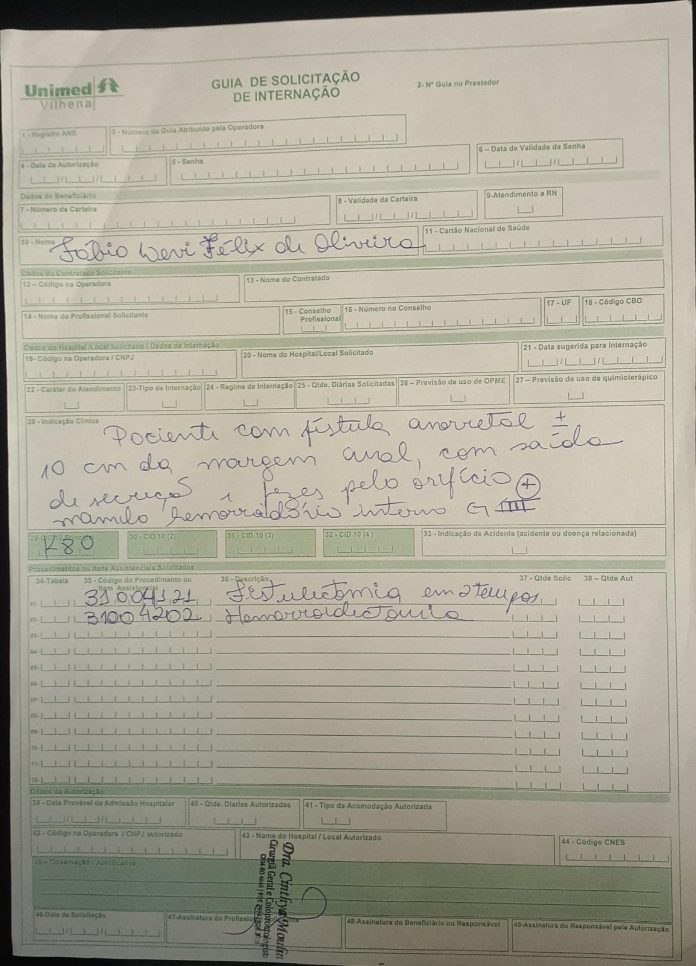 Unimed
Vilhena
GUIA DE SOLICITAÇÃO
DE INTERNAÇÃO
2- Nº Guia no Prestador
1 - Registro ANS
3 - Número da Guia Atribuído pela Operadora
4 - Data da Autorização
5 - Senha
6 – Data de Validade da Senha
Dados do Beneficiário
7 - Número da Carteira
8 - Validade da Carteira
9-Atendimento a RN
10 - Nome
Fábio Levi Félix de Oliveira
11 - Cartão Nacional de Saúde
Dados do Contratado Solicitante
12 – Código na Operadora
13 - Nome do Contratado
14 - Nome do Profissional Solicitante
15 - Conselho Profissional
16 - Número no Conselho
17 - UF
18 - Código CBO
Dados do Hospital /Local Solicitado / Dados da Internação
19- Código na Operadora / CNPJ
20 - Nome do Hospital/Local Solicitado
21 - Data sugerida para Internação
22 - Caráter do Atendimento
23-Tipo de Internação
24 - Regime de Internação
25 - Qtde. Diárias Solicitadas
26 – Previsão de uso de OPME
27 – Previsão de uso de quimioterápico
28 - Indicação Clínica
Paciente com fístula anorretal ±
10 cm da margem anal, com saída
de secreção e fezes pelo orifício +
mamilo hemorroidário interno G III
K80
30 - CID 10 (2)
31 - CID 10 (3)
32 - CID 10 (4)
33 - Indicação de Acidente (acidente ou doença relacionada)
Procedimentos ou Itens Assistenciais Solicitados
34-Tabela
35 - Código do Procedimento ou
Item Assistencial
36 - Descrição
37 - Qtde Solic
38 – Qtde Aut
01- 31004121 Fistulectomia em 2 tempos
02- 31004202 Hemorroidectomia
03-
04-
05-
06-
07-
08-
09-
10-
11-
12-
Dados da Autorização
39 - Data Provável da Admissão Hospitalar
40 - Qtde. Diarias Autorizadas
41 - Tipo da Acomodação Autorizada
42 - Código na Operadora / CNPJ autorizado
43 - Nome do Hospital / Local Autorizado
44 - Código CNES
45 – Observação / Justificativa
46-Data da Solicitação
47-Assinatura do Profissional
48-Assinatura do Beneficiário ou Responsável
49-Assinatura do Responsável pela Autorização
Dra. Cinthya Moulin
Cirurgia Geral e Coloproctologista